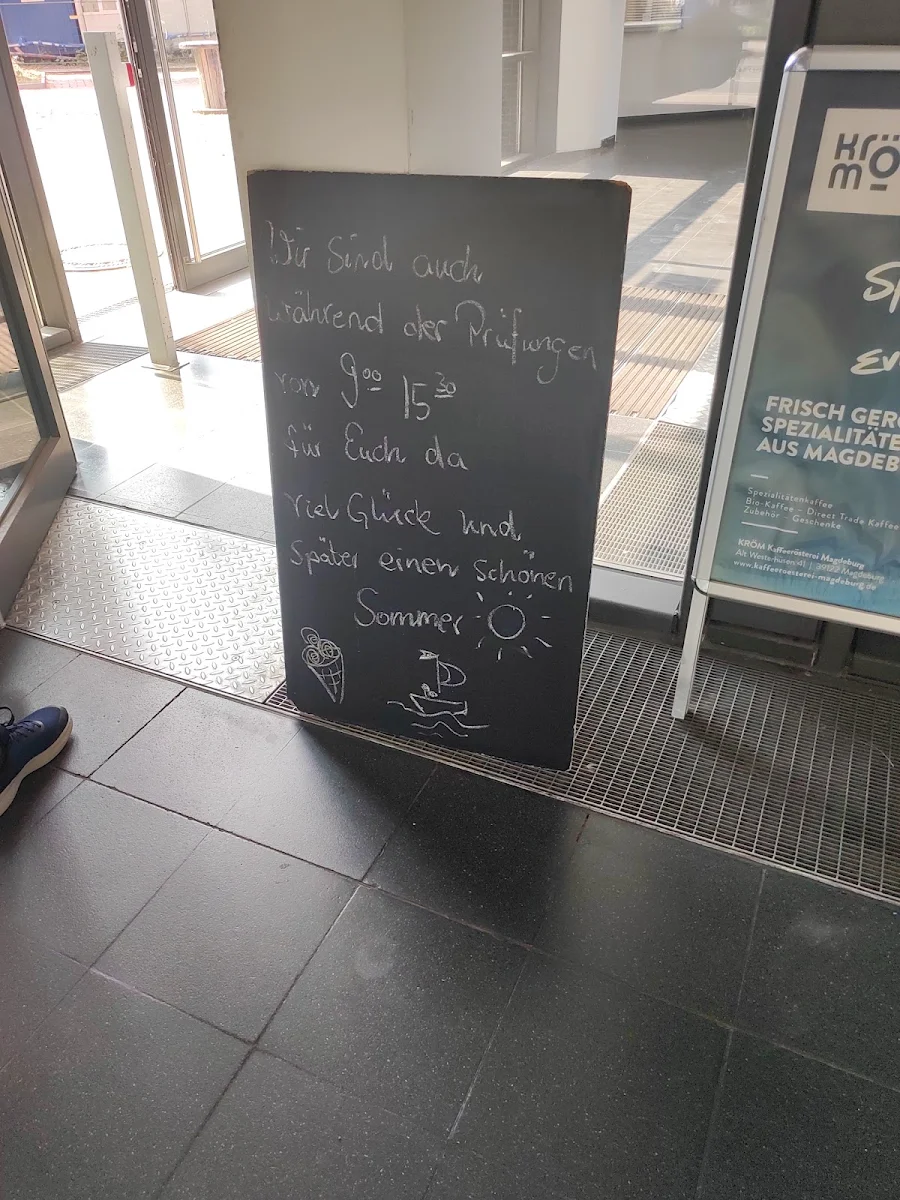 Wir sind auch
während der Prüfungen
von 9⁰⁰ 15³⁰
für Euch da
Viel Glück und
später einen schönen
Sommer
KRÖ
M
FRISCH
SPEZIALITÄTE
AUS MAGDEB
Spezialitätenkaffee
Bio-Kaffee - Direct Trade Kaffee
Zubehör - Geschenke
KRÖM Kaffeerösterei Magdeburg
Alt Westerhüsen 41 | 39122 Magdeburg
www.kaffeeroesterei-magdeburg.de